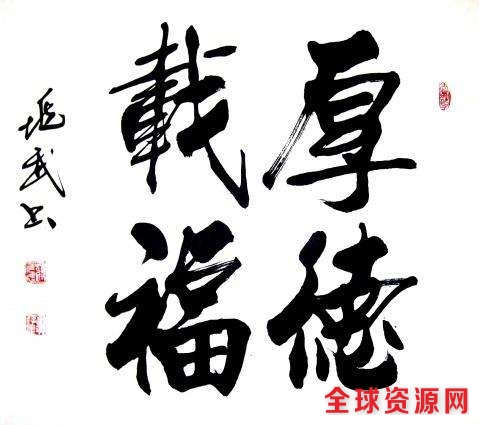 厚德
載福
武书
全球资源网